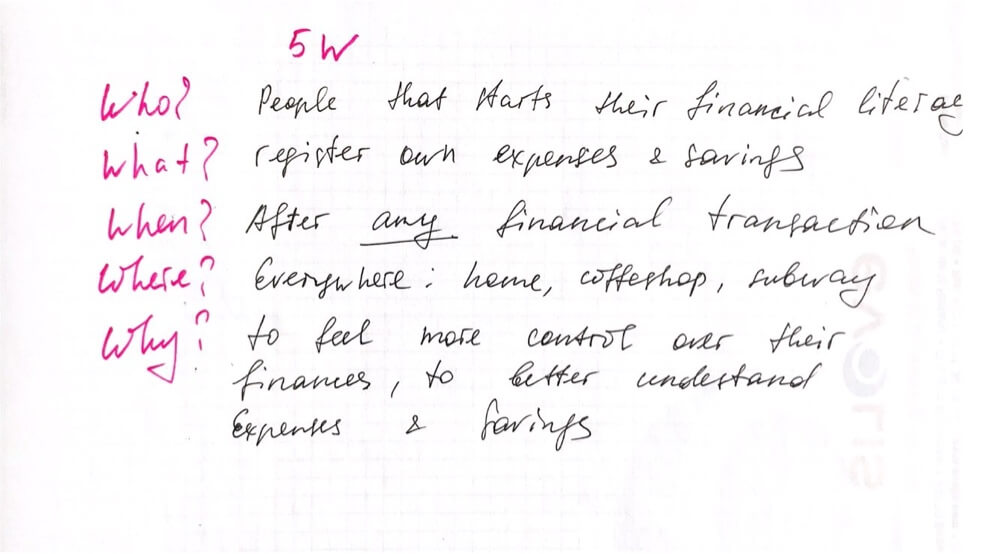 5 W
Who? People that starts their financial literac
What? register own expenses & savings
When? After any financial transaction
Where? Everywhere: home, coffeshop, subway
Why? to feel more control over their
finances, to better understand
Expenses & Savings